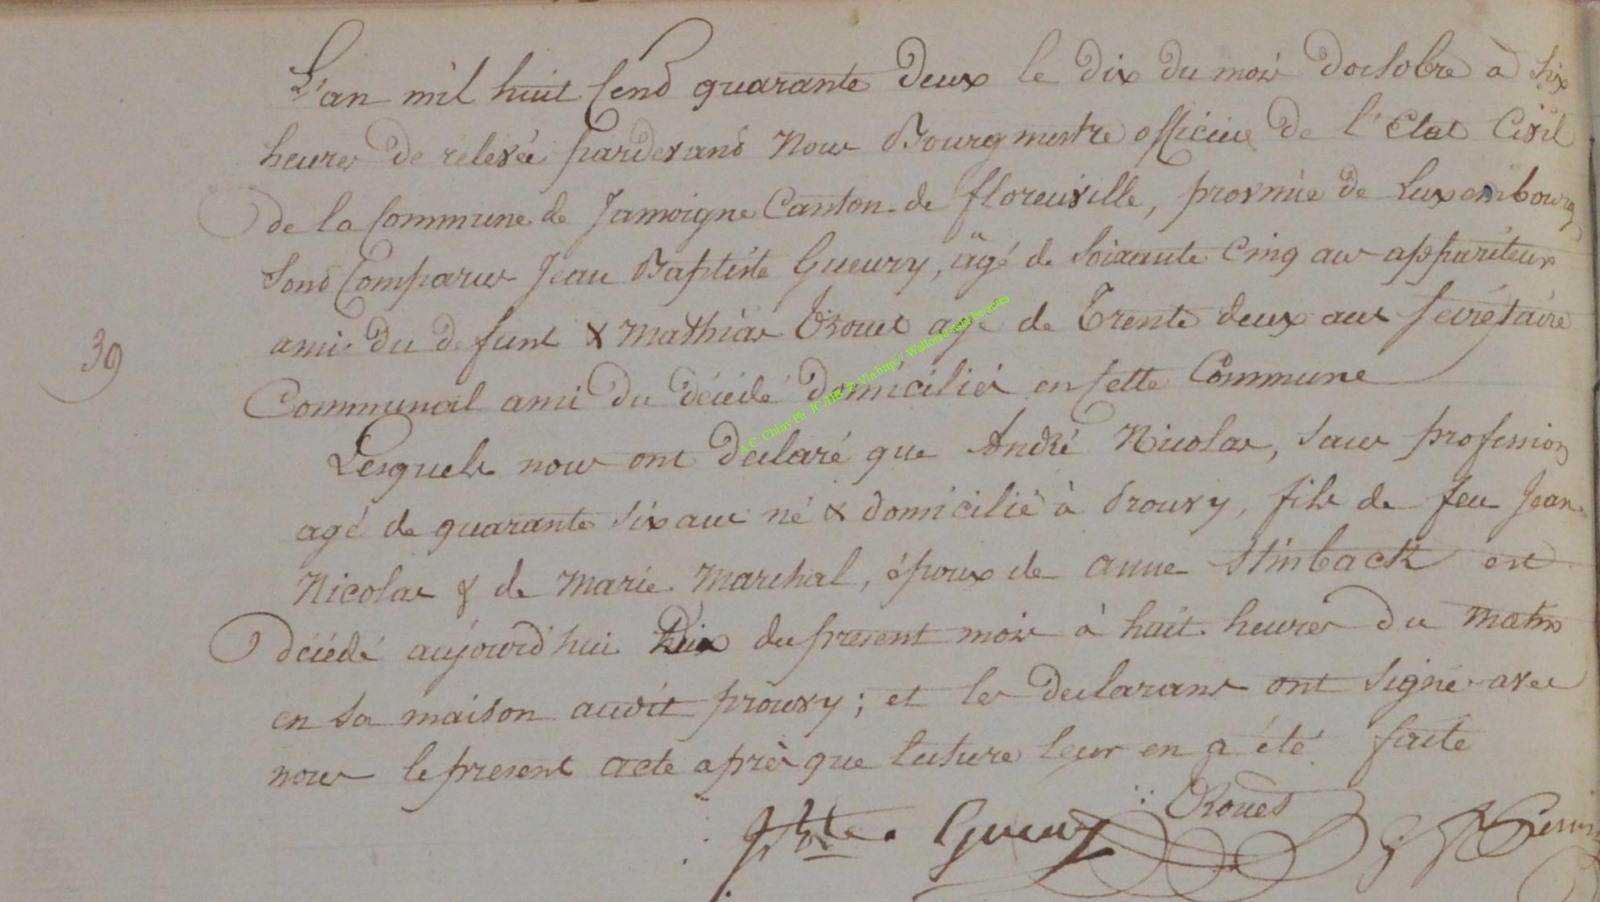 L'an mil huit Cent quarante deux le dix du mois d'octobre à Six
heures de relevée pardevand Nous Bourgmestre officier de l'Etat Civil
de la Commune de Jamoigne Canton de florenville, provinie de Luxembourg
Sond Comparus Jean Baptiste Gueury, agé de Soixante Cinq ans appariteur
ami du defunt & Mathias agé de Trente deux ans Secrétaire
39
Communal ami du décédé domiciliés en Cette Commune
Lesquels nous ont declaré que André Nicolas, sans profession
agé de quarante six ans né & domicilié à prouvy, fils de feu Jean
Nicolas & de Marie Marchal, époux de anne Stinback est
décédé aujourd'hui dix du present mois à huit heures du matin
en sa maison audit prouvy; et les declarans ont signé avec
nous le present acte après que lecture leur en a été faite
Gueury